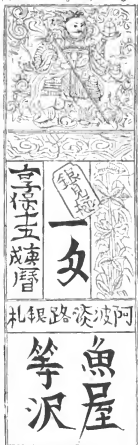 一匁
享保十五庚戌暦
阿波淡路銀札
魚屋
等沢